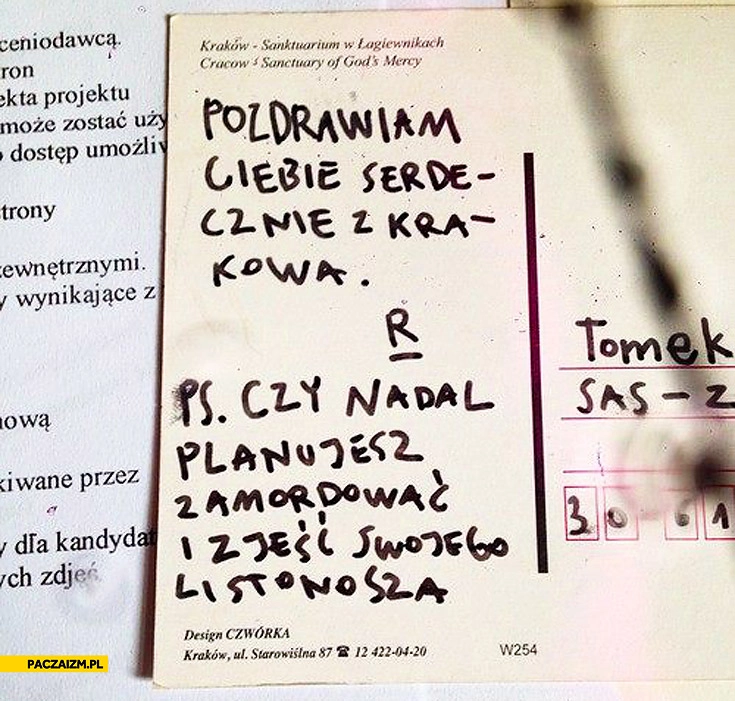 ceniodawcą.
ron
ekta projektu
może zostać uży
dostęp umożliw
trony
ewnętrznymi.
y wynikające z
nową
kiwane przez
y dla kandydat
ych zdjęć
Kraków - Sanktuarium w Łagiewnikach
Cracow - Sanctuary of God's Mercy
POZDRAWIAM
CIEBIE SERDE-
CZNIE Z KRA-
KOWA.
R
PS. CZY NADAL
PLANUJESZ
ZAMORDOWAĆ
I ZJEŚĆ SWOJEGO
LISTONOSZA
Design CZWÓRKA
Kraków, ul. Starowiślna 87 ☎ 12 422-04-20
W254
Tomek
SAS-Z
30 61
PACZAIZM.PL